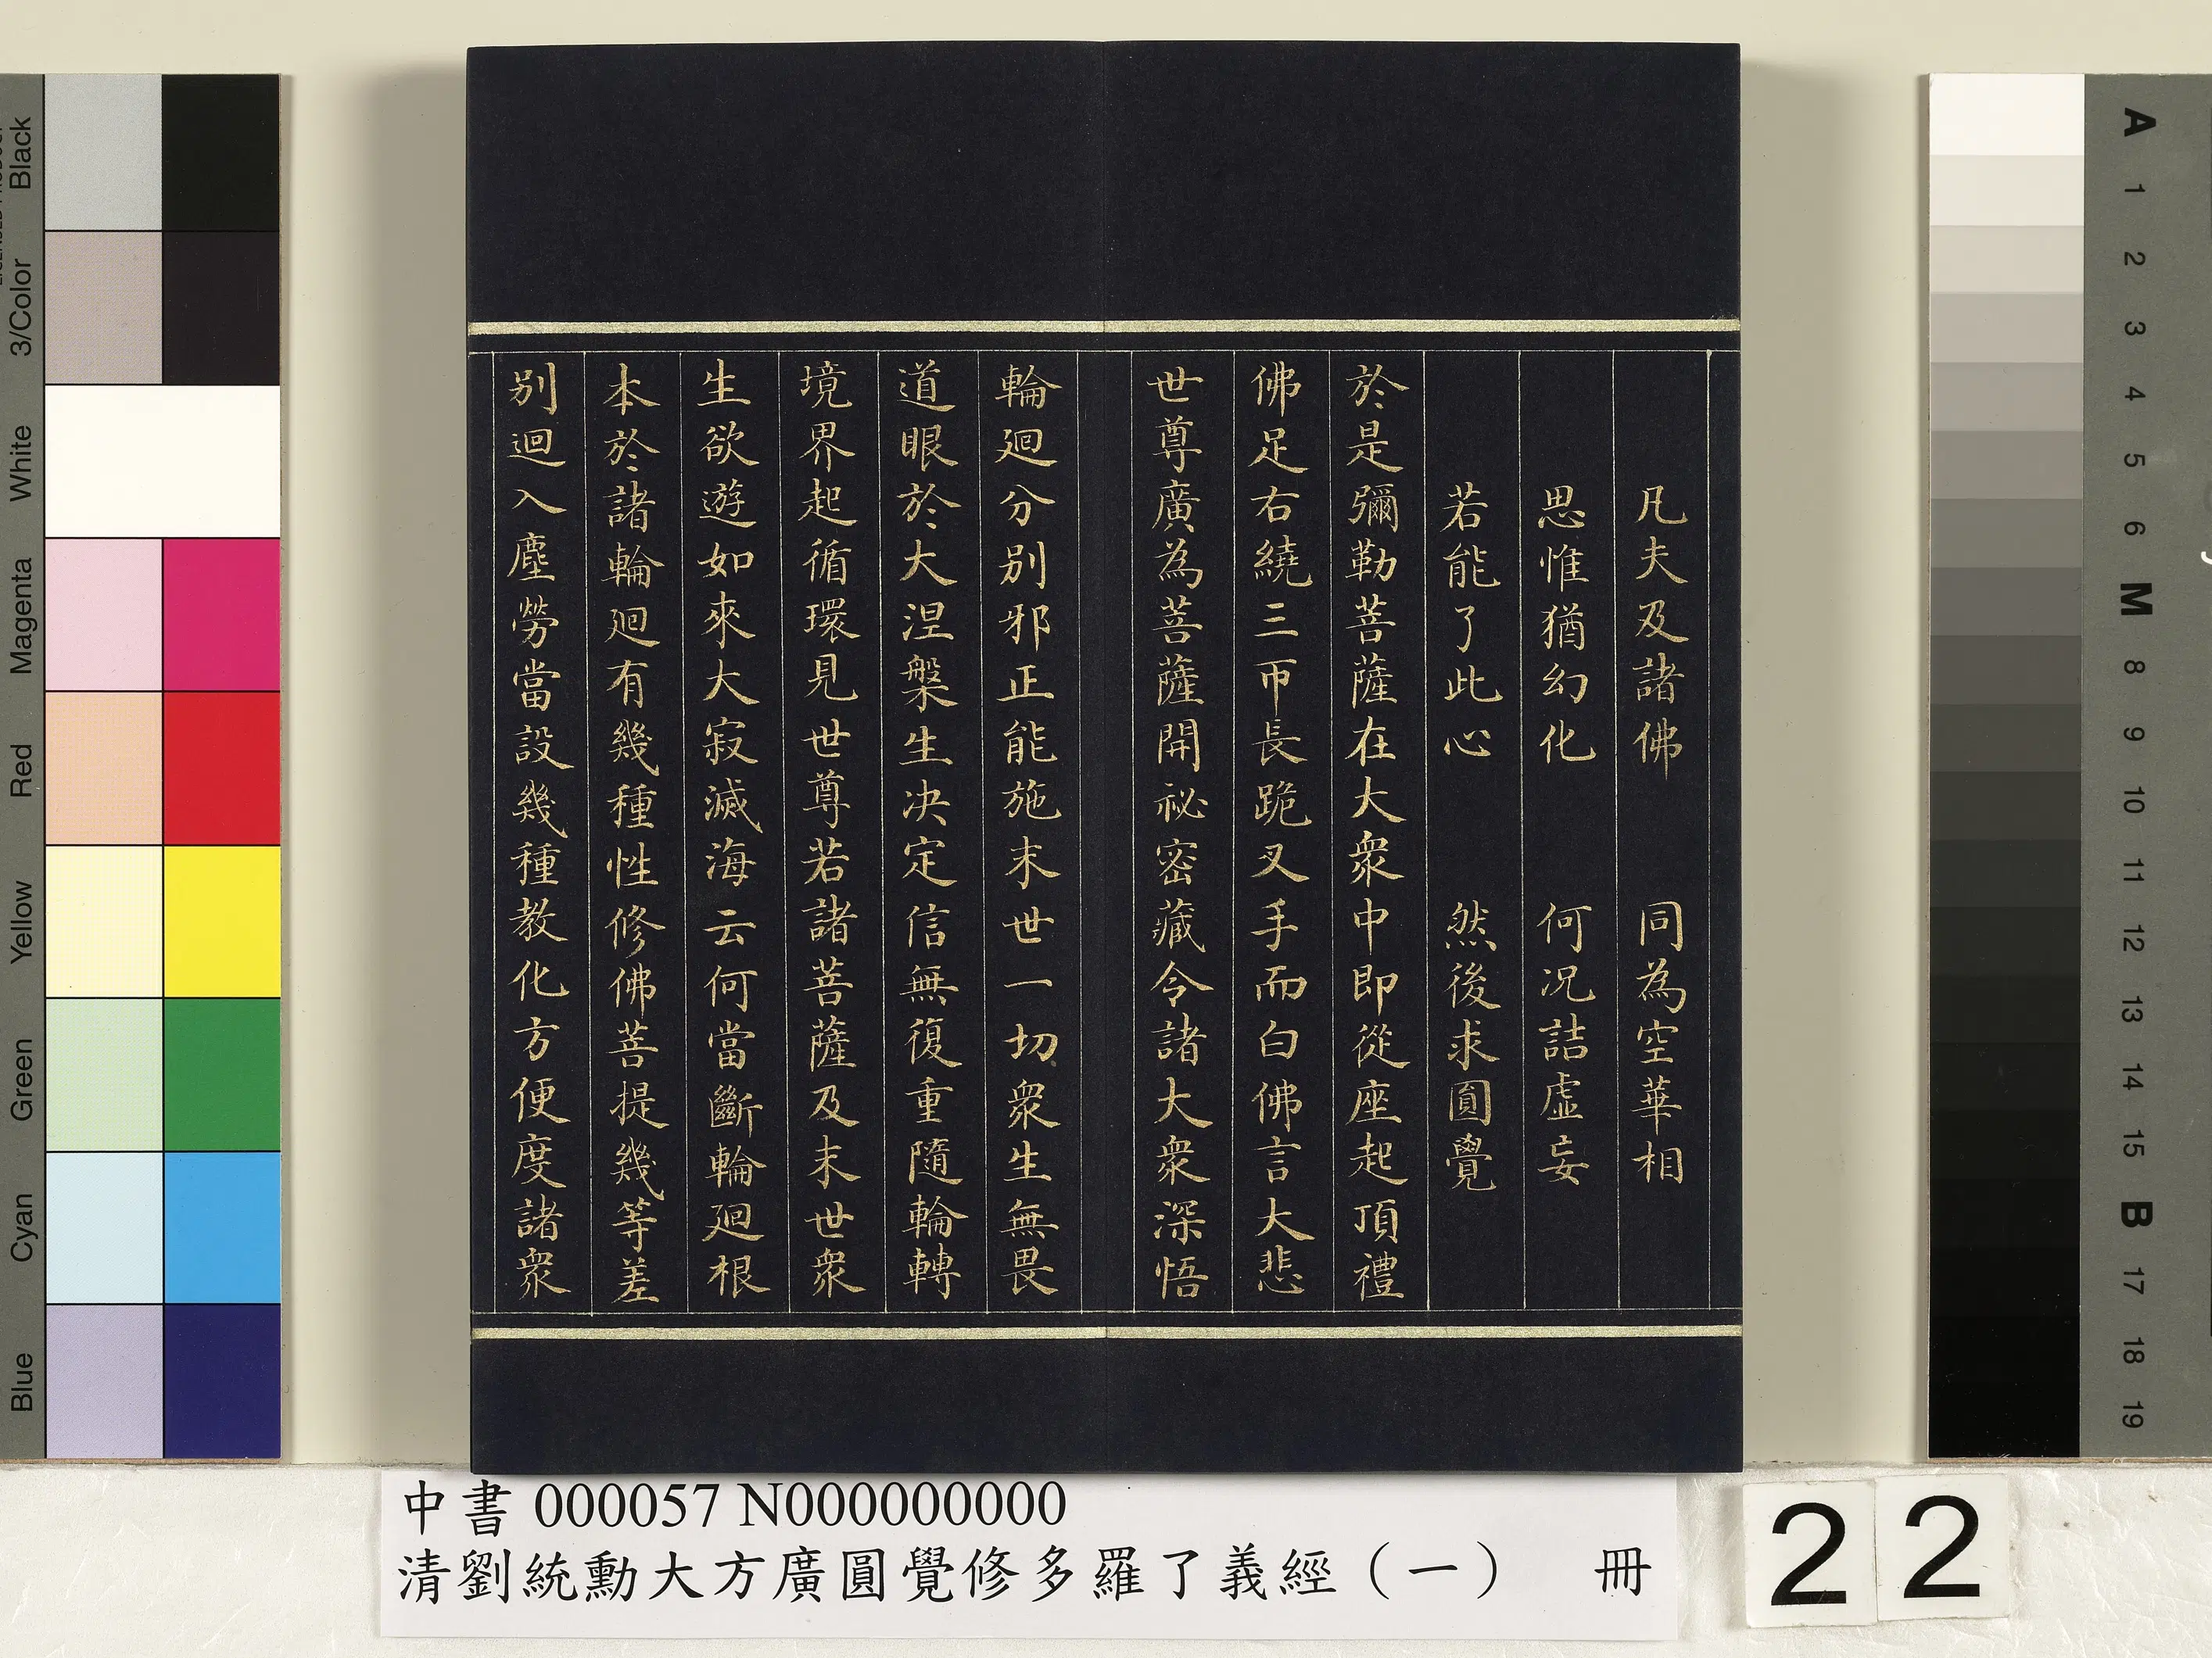 凡夫及諸佛　同為空華相
思惟猶幻化　何况詰虛妄
若能了此心　然後求圓覺
於是彌勒菩薩在大衆中即從座起頂禮
佛足右繞三帀長跪叉手而白佛言大悲
世尊廣為菩薩開祕密藏令諸大衆深悟
輪廻分別邪正能施末世一切衆生無畏
道眼於大涅槃生决定信無復重隨輪轉
境界起循環見世尊若諸菩薩及末世衆
生欲遊如來大寂滅海云何當斷輪廻根
本於諸輪廻有幾種性修佛菩提幾等差
別迴入塵勞當設幾種教化方便度諸衆
中書 000057 N000000000
清劉統勳大方廣圓覺修多羅了義經（一）　冊
22
Black
3/Color
White
Magenta
Red
Yellow
Green
Cyan
Blue
A
1
2
3
4
5
6
M
8
9
10
11
12
13
14
15
B
17
18
19